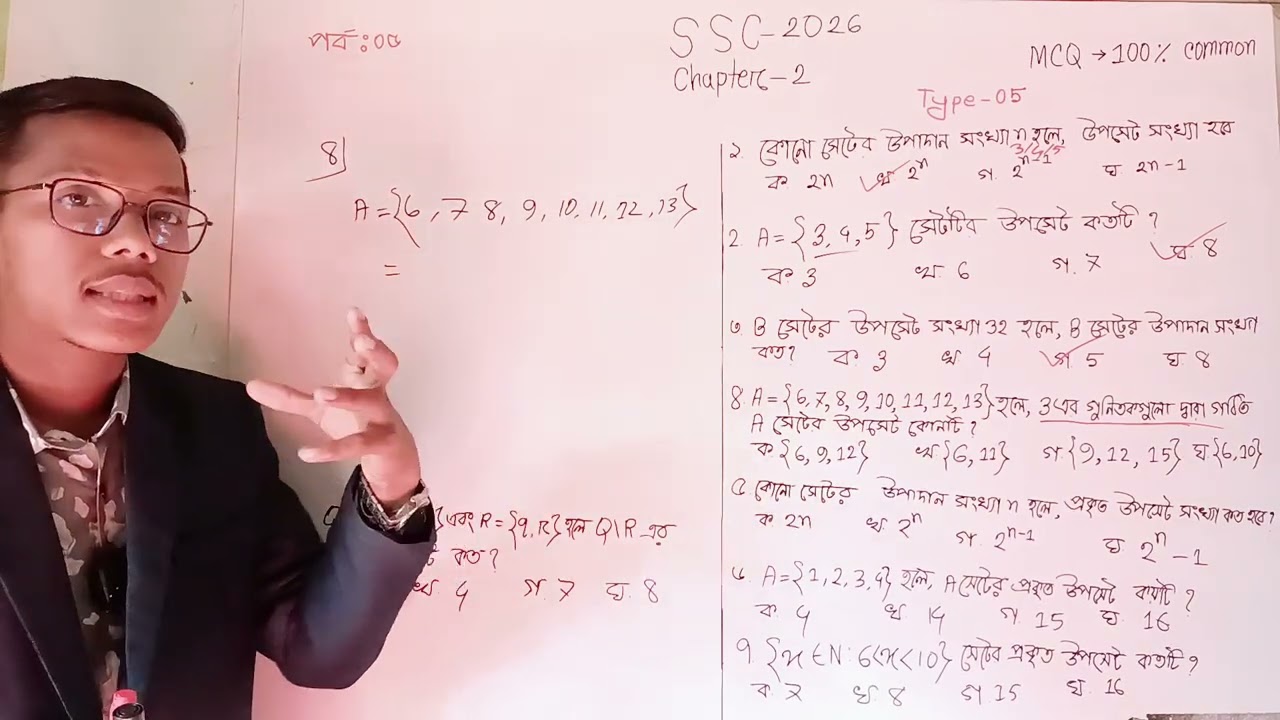 পর্ব:০৫
SSC-2026
Chapter-2
MCQ → 100% common
Type-05
8)
A = {6, 7 8, 9, 10, 11, 12, 13}
=
১. কোনো সেটের উপাদান সংখ্যা n হলে, উপসেট সংখ্যা হবে
3/4/5
ক. 2n খ. 2ⁿ গ. 2ⁿ⁻¹ ঘ. 2n-1
2. A = {3, 4, 5} সেটটির উপসেট কতটি ?
ক. 3 খ. 6 গ. 7 ঘ. 8
৩ B সেটের উপসেট সংখ্যা 32 হলে, B সেটের উপাদান সংখ্যা
কত? ক. 3 খ. 4 গ. 5 ঘ. 8
8. A = {6, 7, 8, 9, 10, 11, 12, 13} হলে, 3 এর গুনিতকগুলো দ্বারা গঠিত
A সেটের উপসেট কোনটি ?
ক. {6, 9, 12} খ. {6, 11} গ. {9, 12, 15} ঘ. {6, 10}
৫. কোনো সেটের উপাদান সংখ্যা n হলে, প্রকৃত উপসেট সংখ্যা কত হবে?
ক. 2n খ. 2ⁿ গ. 2ⁿ⁻¹ ঘ. 2ⁿ-1
৬. A = {1, 2, 3, 4} হলে, A সেটের প্রকৃত উপসেট কয়টি ?
ক. 4 খ. 14 গ. 15 ঘ. 16
৭. {x ∈ N : 6<x<10} সেটের প্রকৃত উপসেট কতটি ?
ক. 7 খ. 8 গ. 15 ঘ. 16
} এবং R = {q, r} হলে Q\R এর
কত ?
খ. 4 গ. 7 ঘ. 8